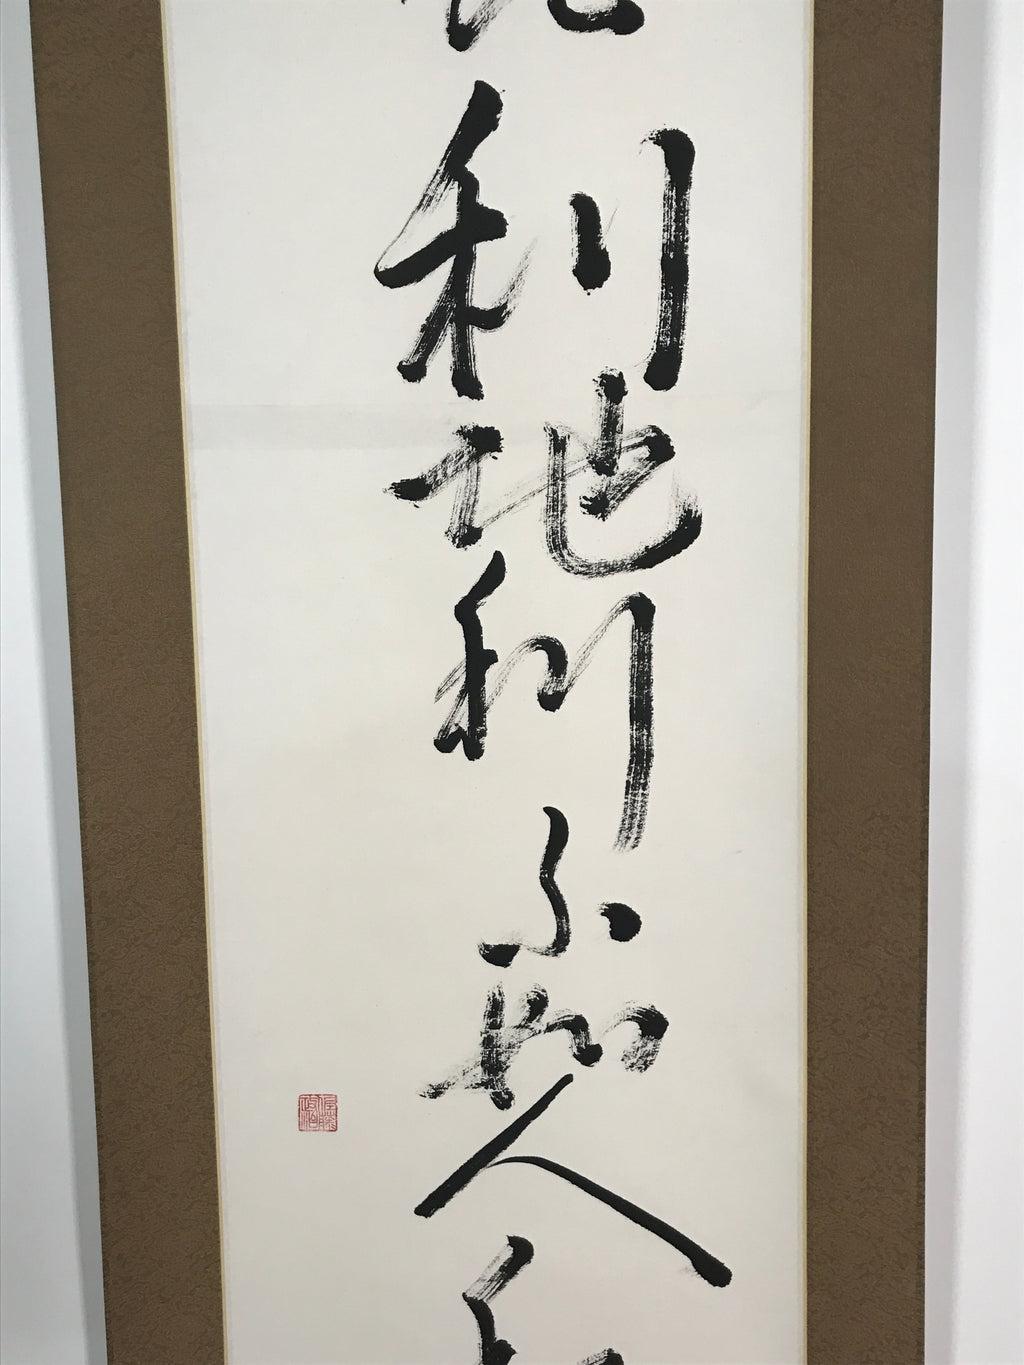 利地利不如人